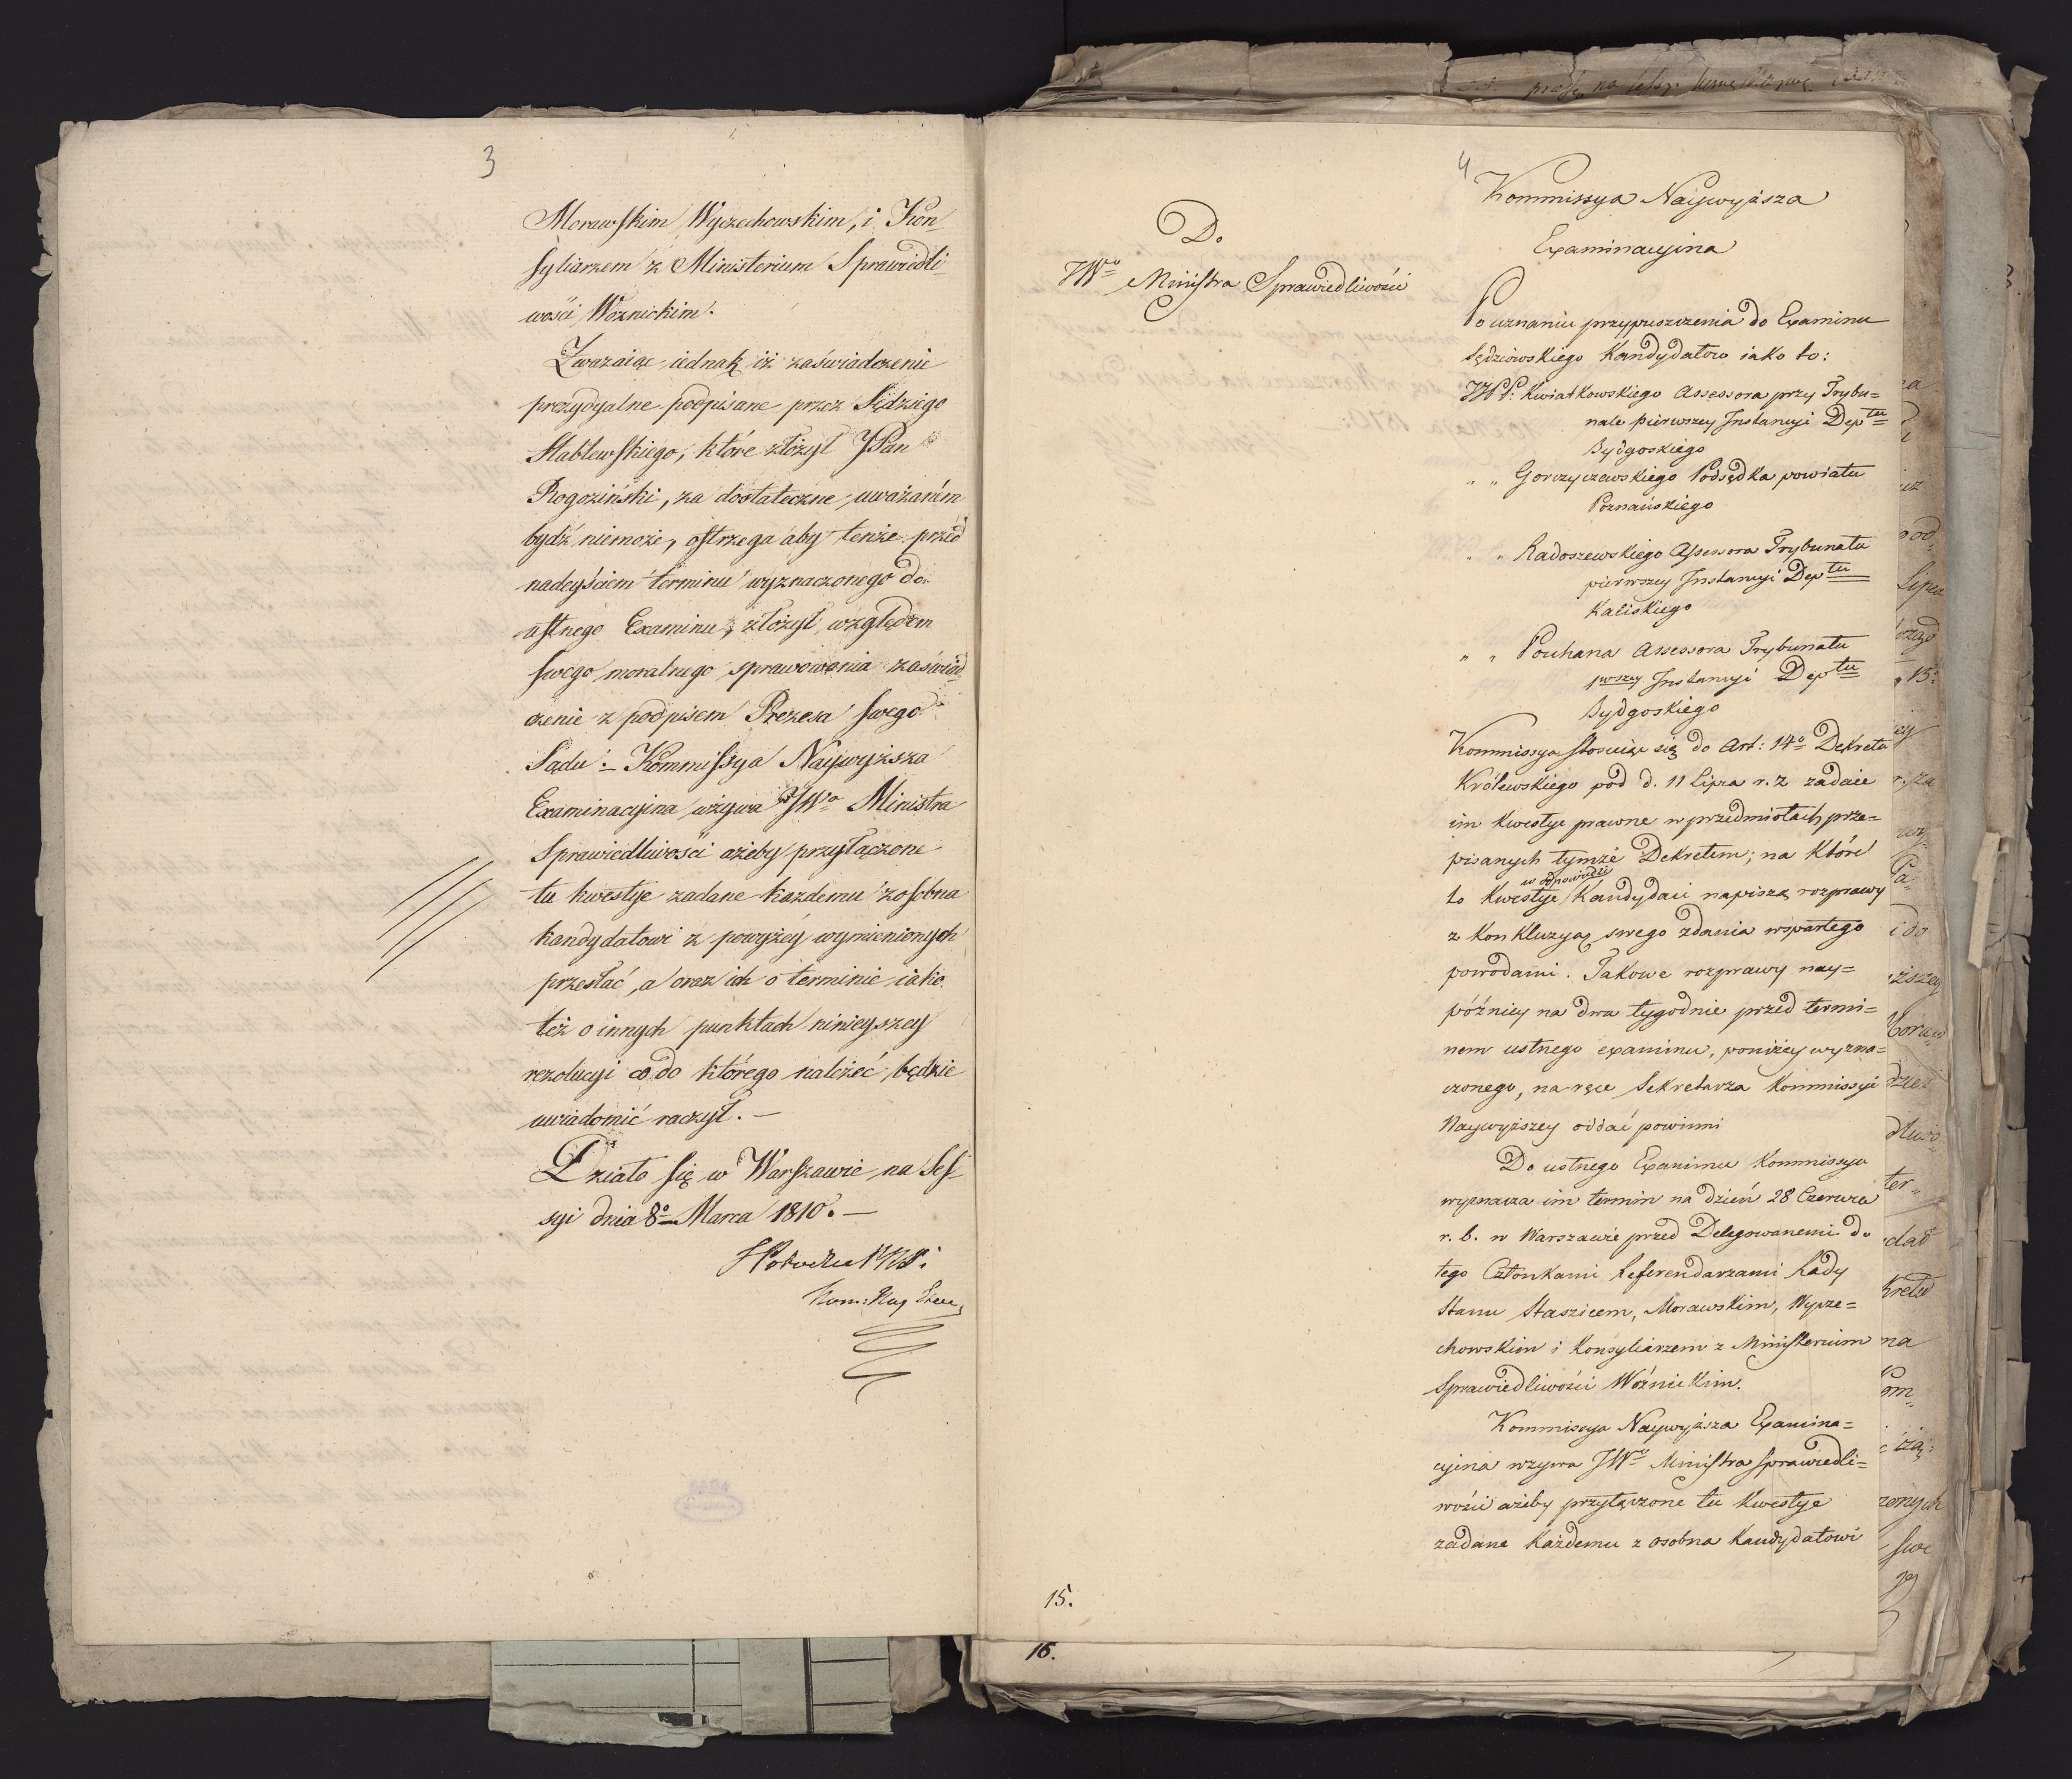 3
Morawskim, Wyczechowskim, i Kon
syliarzem z Ministerium Sprawiedli
wości Woznickim.
Zwazaiąc iednak iż zaświadczenie
prezydyalne podpisane przez Sędziego
Stablewskiego, które złożył JPan
Rogoziński, za dostateczne uważanim
bydź niemoże, ostrzega aby tenże przed
nadeyściem terminu wyznaczonego do
ustnego Examinu, złożył względem
swego moralnego sprawowania zaświad
czenie z podpisem Prezesa swego
Sądu :- Kommissya Naywyższa
Examinacyina wzywa JWo Ministra
Sprawiedliwości ażeby przyłączone
tu kwestye zadane kazdemu zosobna
kandydatowi z powyżey wymienionych
przesłać, a oraz ich o terminie iako
też o innych punktach ninieyszey
rezolucyi co do którego należeć będzie
uwiadomić raczył. —
Działo się w Warszawie na Ses-
syi dnia 8o Marca 1810. —
4
Kommissya Naywyższa
Examinacyina
Do
JWo Ministra Sprawiedliwości
Po uznaniu przypuszczenia do Examinu
Sędziowskiego Kandydatow iako to:
JPP: Kwiatkowskiego Assessora przy Trybu=
nale pierwszey Instancyi Deptu
Bydgoskiego
„ „ Gorczyczewskiego Podsędka powiatu
Poznańskiego
„ „ Radoszewskiego Assessora Trybunału
pierwszey Instancyi Deptu
Kaliskiego
„ „ Pouhana Assessora Trybunału
1wszey Instancyi Deptu
Bydgoskiego
Kommissya stosuiąc się do Art: 14o Dekretu
Królewskiego pod d. 11 Lipca r. z zadaie
im kwestye prawne w przedmiotach prze=
pisanych tymże Dekretem; na które
w odpowiedzi
to kwestye Kandydaci napiszą rozprawy
z konkluzyą swego zdania wspartego
powodami. Takowe rozprawy nay=
późniey na dwa tygodnie przed termi=
nem ustnego examinu, poniżey wyzna=
czonego, na ręce Sekretarza Kommissyi
Naywyższey oddać powinni
Do ustnego Examinu Kommissya
wyznacza im termin na dzień 28 Czerwca
r. b. w Warszawie przed Delegowanemi do
tego Członkami Referendarzami Rady
Stanu Staszicem, Morawskim, Wycze=
chowskim i Konsyliarzem z Ministerium
Sprawiedliwości Woźnickim.
Kommissya Naywyższa Examina=
cyina wzywa JWo Ministra Sprawiedli=
wości ażeby przyłączone tu kwestye
zadane każdemu z osobna Kandydatowi
15.
16.